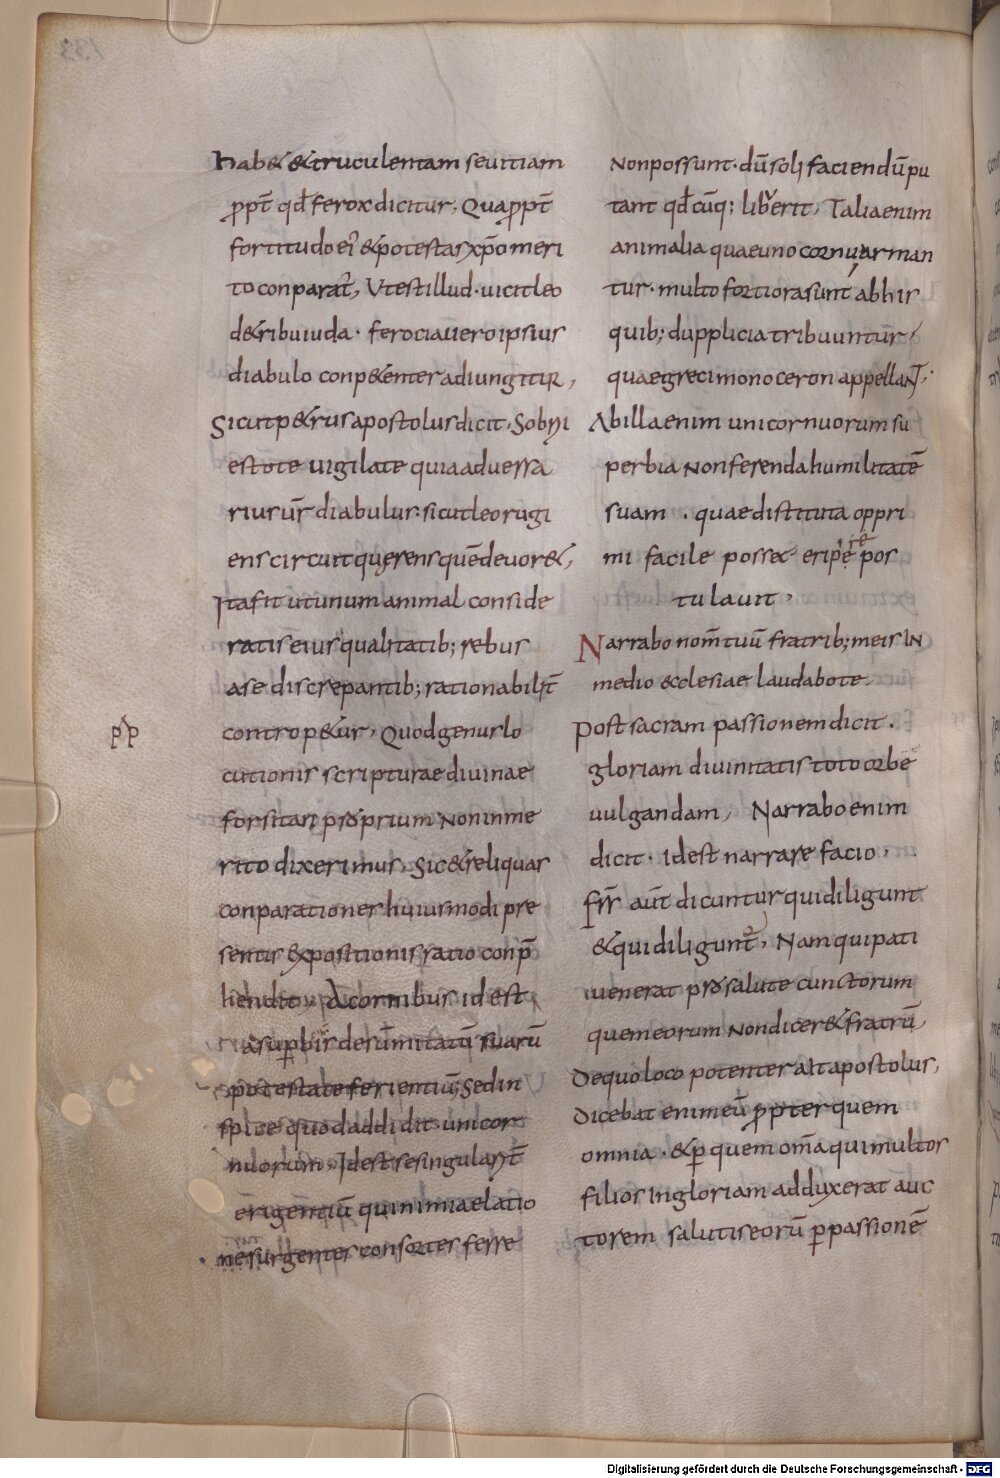 hab& &truculentam seuitiam
ꝓpt̄ qd̄ ferox dicitur, Quaꝓpt̄
fortitudo ei' & potestas xp̄o meri
to conparat̄, Vt est illud. uicit leo
de tribu iuda. ferocia uero ipsius
diabulo conp&enter adiungitur,
Sicut p&rus apostolus dicit, Sobrii
estote uigilate quia aduersa
rius ur̄ diabulus. sicut leo rugi
ens circuit querens quē deuor&,
Ita fit ut unum animal conside
ratis eius qualitatib; rebus
a se discrepantib; rationabilit̄
controp&ur, Quod genus lo
cutionis scripturae diuinae
forsitan proprium non inme
rito diximus, Sic & reliquas
conparationes huiusmodi pre
sentis expositionis ratio conp̄
hendit. A cornibus id est
a suꝑbis de sūmitatū suarū
potestate ferientiū, Sed in
spice quod addidit unicor
nuorum. Id est se singularit̄
erigentiū qui nimia elatio
ne surgentes consortes ferre
PP
Non possunt. dū soli faciendū pu
tant qd̄cūq; liberit, Talia enim
animalia quae uno cornu arman
tur. multo fortiora sunt ab his
quib; dupplicia tribuuntur,
quae greci monoceron appellant,
Ab illa enim unicornuorum su
perbia non ferenda humilitatē
suam. quae distituta oppri
mi facile possec eripe pos
tulauit,
Narrabo nom̄ tuū fratrib; meis in
medio ecclesiae laudabo te.
Post sacram passionem dicit.
gloriam diuinitatis toto orbe
uulgandam, Narrabo enim
dicit. Id est narrare facio,
fr̄r aūt dicuntur qui diligunt
& qui diligunt̄, Nam qui pati
uenerat pro salute cunctorum
quem eorum non dicer& fratrū,
De quo loco potenter ait apostolus,
Dicebat enim eū ꝓpter quem
omnia. & ꝑ quem om̄a qui multos
filios in gloriam adduxerat auc
torem salutis eorū ꝑ passionē
Digitalisierung gefördert durch die Deutsche Forschungsgemeinschaft - DFG